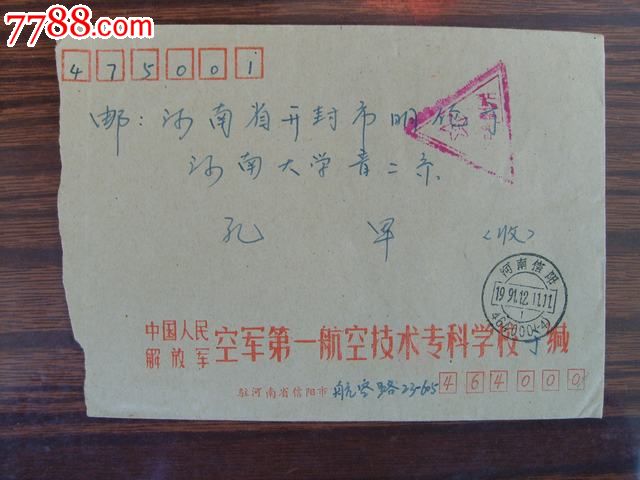 7788.com
475001
邮：河南省开封市明伦
河南大学青二系
孔 军 〈收〉
河南信阳
1991.12.11.11
1
464000(4)
中国人民
解放军 空军第一航空技术专科学校 缄
驻河南省信阳市航空路23-605 464000